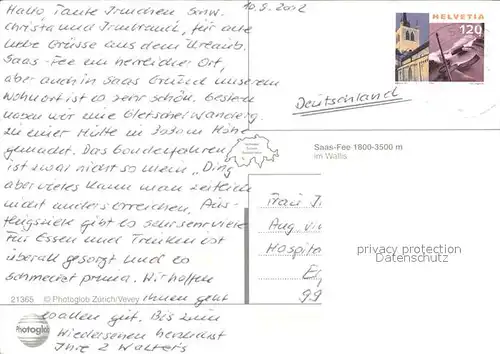 10.9.2002
Hallo, Tante Irmchen sow.
Christa und Irmtraud, für alle
liebe Grüsse aus dem Urlaub.
Saas-Fee ein herrlicher Ort,
aber auch in Saas Grund unserem
Wohnort ist es sehr schön. Gestern
haben wir eine Gletscherwanderg.
zu einer Hütte in 3030m Höhe
gemacht. Das Gondelfahren
ist zwar nicht so mein „Ding"
aber vieles kann man zeitlich
nicht anders erreichen, Aus-
flugsziele gibt es sehr sehr viele
Für Essen und Trinken ist
überall gesorgt und es
schmeckt prima. Wir hoffen
Ihnen geht
allen gut. Bis zum
Wiedersehen herzlichst
Ihre 2 Walters
HELVETIA
120
Deutschland
Saas-Fee 1800-3500 m
im Wallis
Frau
Aug. Vin
Hospita
privacy protection
Datenschutz
99
21365 © Photoglob Zürich/Vevey
Photoglob